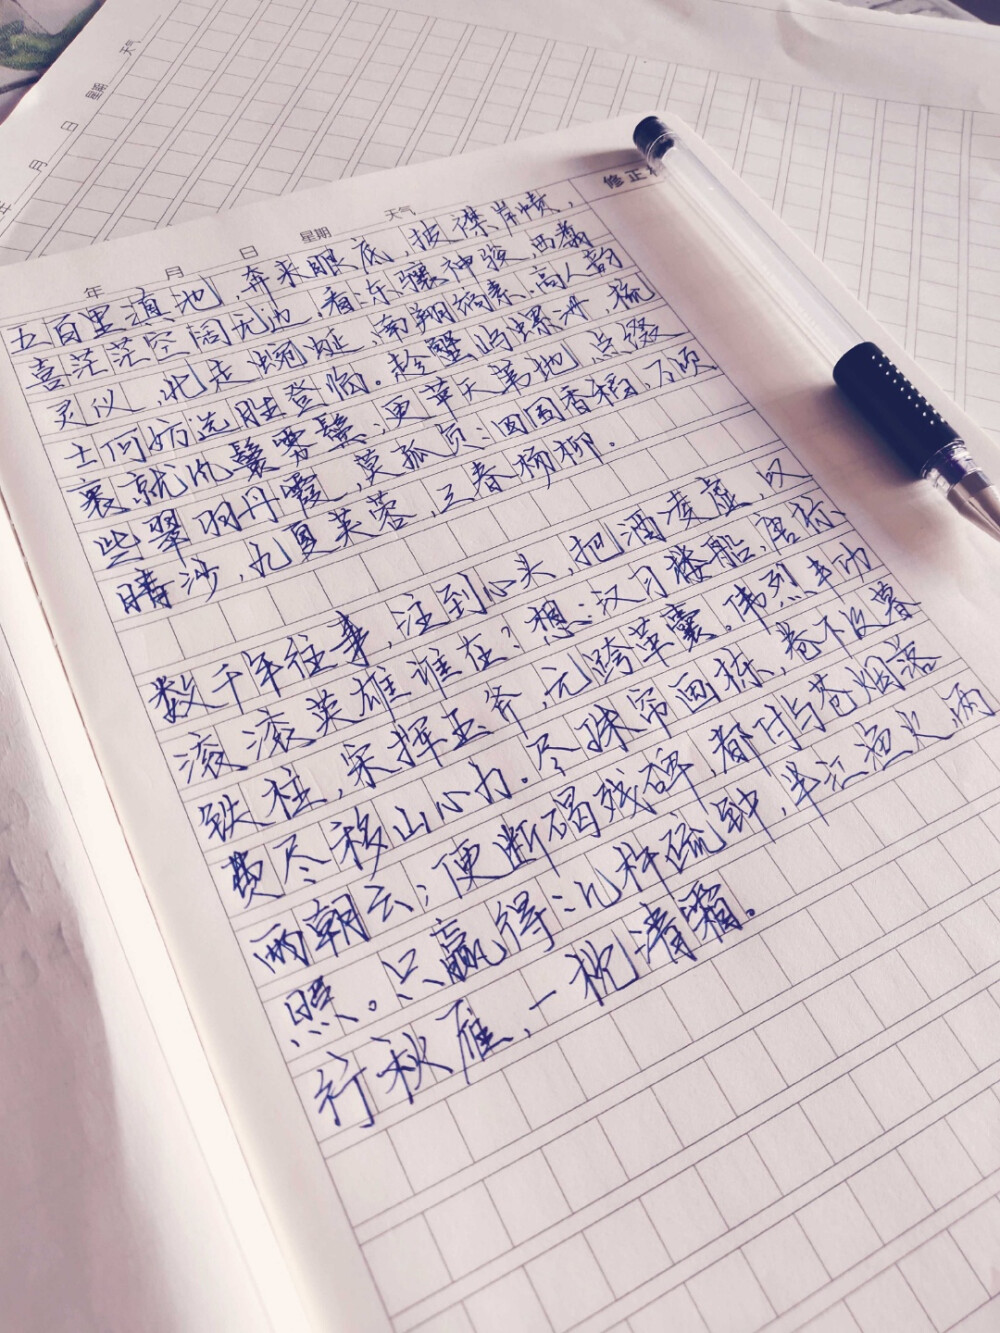 天气
星期
日
月
年
修正
年 月 日 星期 天气
五百里滇池,奔来眼底,披襟岸帻,
喜茫茫空阔无边。看:东骧神骏,西翥
灵仪,北走蜿蜒,南翔缟素。高人韵
士何妨选胜登临。趁蟹屿螺洲,梳
裹就风鬟雾鬓;更苹天苇地,点缀
些翠羽丹霞,莫孤负:四围香稻,万顷
晴沙,九夏芙蓉,三春杨柳。
数千年往事,注到心头,把酒凌虚,叹
滚滚英雄谁在?想:汉习楼船,唐标
铁柱,宋挥玉斧,元跨革囊。伟烈丰功
费尽移山心力。尽珠帘画栋,卷不及暮
雨朝云;便断碣残碑,都付与苍烟落
照。只赢得:几杵疏钟,半江渔火,两
行秋雁,一枕清霜。